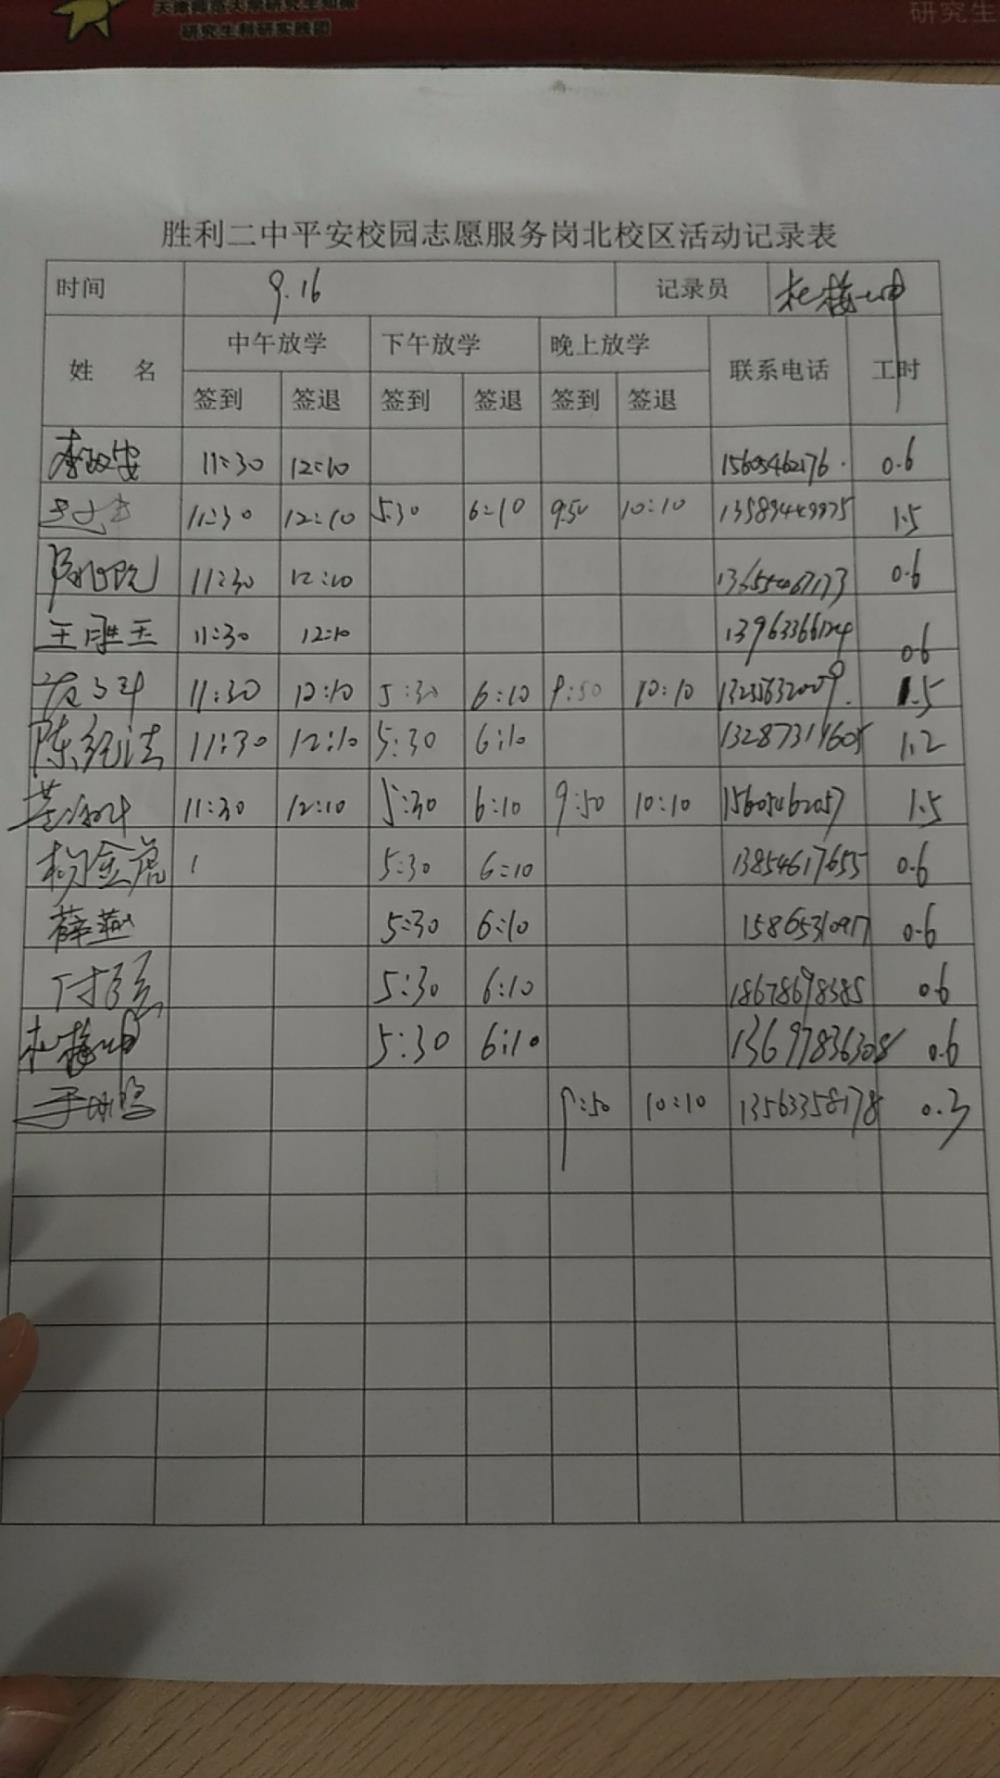 研究生科研实践团
研究生
胜利二中平安校园志愿服务岗北校区活动记录表
时间 9.16 记录员 杜梅
姓 名 中午放学 下午放学 晚上放学 联系电话 工时
签到 签退 签到 签退 签到 签退
11:30 12:10 15605462176 0.6
11:30 12:10 5:30 6:10 9:50 10:10 13589449975 1.5
11:30 12:10 0.6
王胜玉 11:30 12:10 0.6
11:30 12:10 5:30 6:10 9:50 10:10 1.5
陈纪法 11:30 12:10 5:30 6:10 13287311605 1.2
11:30 12:10 5:30 6:10 9:50 10:10 15605462057 1.5
杨金虎 5:30 6:10 13854617655 0.6
薛燕 5:30 6:10 15865310917 0.6
5:30 6:10 18678698385 0.6
杜梅 5:30 6:10 13697836308 0.6
9:50 10:10 13563358178 0.3